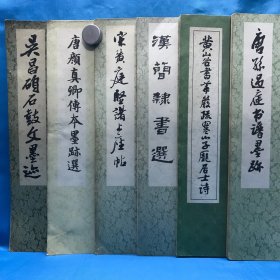 吴昌碩石鼓文墨迹
唐顔真卿傳本墨跡選
宋黄庭堅諸上座帖
漢簡隸書選
黄山谷書布嚴張寒山子龐居士詩
唐孫過庭书譜墨跡